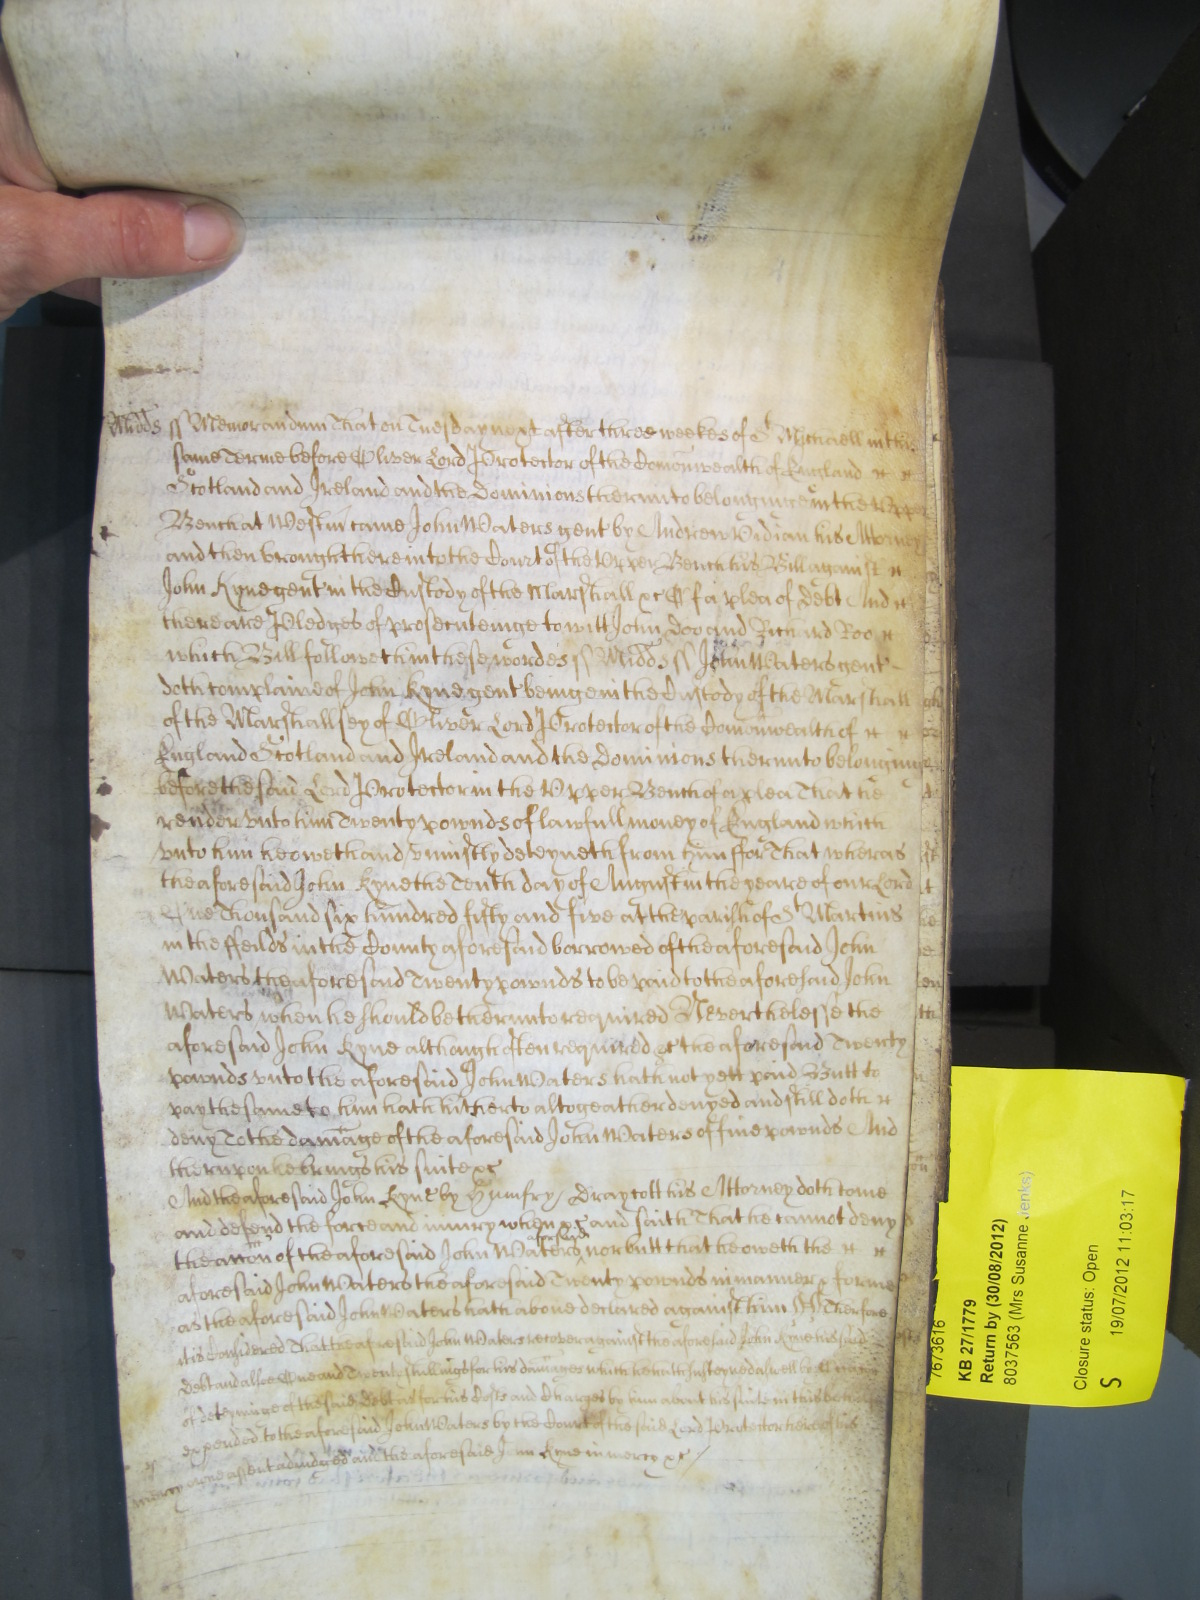 Midds ss Memorandum That on Tuesday next after three weekes of St Michaell in this
same Terme before Oliver Lord Protector of the Comonwealth of England
Scotland and Ireland and the Dominions thereunto belonginge in the Upper
Bench at Westm came John Waters gent by Andrew Vidian his Attorney
and then brought here into the Court of the Upper Bench his Bill against
John Kyne gent in the Custody of the Marshall &c Of a plea of Debt And
there are Pledges of prosecuteinge to witt John Doo and Richard Roo
which Bill followeth in these wordes ss Midds ss John Waters gent
doth complaine of John Kyne gent beinge in the Custody of the Marshall
of the Marshallsey of Oliver Lord Protector of the Comonwealth of
England Scotland and Ireland and the Dominions therunto belonging
before the said Lord Protector in the Upper Bench of a plea That he
render unto him Twenty pownds of lawfull money of England which
unto him he oweth and uniustly deteyneth from him ffor That wheras
the aforesaid John Kyne the Tenth day of August in the yeare of our Lord
One Thousand six hundred fifty and five at the parish of St Martins
in the ffeilds in the County aforesaid borrowed of the aforesaid John
Waters the aforesaid Twenty pownds to be paid to the aforesaid John
Waters when he should be therunto required Neverthelesse the
aforesaid John Kyne although often required &c the aforesaid Twenty
pownds unto the aforesaid John Waters hath not yett paid Butt to
pay the same to him hath hitherto altogeather denyed and still doth
deny To the damage of the aforesaid John Waters of five pownds And
therupon he brings his suite &c
And the aforesaid John Kyne by Humfry Draycott his Attorney doth come
and defend the force and iniury when &c and saith That he cannot deny
the accon of the aforesaid John Waters aforesaid nor butt that he oweth the
aforesaid John Waters the aforesaid Twenty pownds in manner & forme
as the aforesaid John Waters hath above declared against him Therfore
it is Considered That the aforesaid John Waters recover against the aforesaid John Kyne his said
Debt and alsoe One and Twenty shillings for his damages which he hath susteyned aswell by Occasion
of deteyninge of the said Debt as for his Costs and Charges by him about his suite in this behalfe
expended to the aforesaid John Waters by the Court of the said Lord Protector here of his
owne assent adiudged and the aforesaid John Kyne in mercy &c
mercy
7673616
KB 27/1779
Return by (30/08/2012)
8037563 (Mrs Susanne Jenks)
Closure status: Open
S 19/07/2012 11:03:17